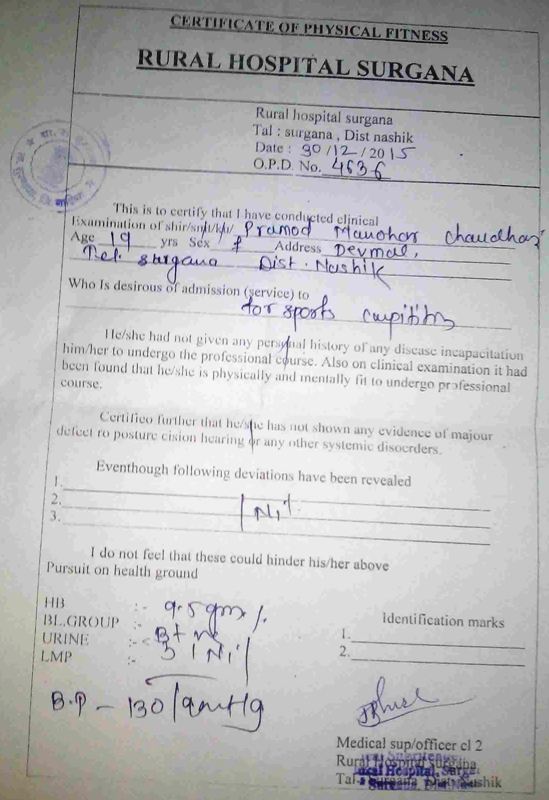 CERTIFICATE OF PHYSICAL FITNESS
RURAL HOSPITAL SURGANA
Rural hospital surgana
Tal : surgana , Dist nashik
Date : 30/12/2015
O.P.D. No. 4636
This is to certify that I have conducted clinical
Examination of shir/smt/ku/ Pramod Manohar Chaudhari
Age 19 yrs Sex Address Devmal,
Tal. Surgana Dist. Nashik
Who Is desirous of admission (service) to
for sports
He/she had not given any personal history of any disease incapacitation
him/her to undergo the professional course. Also on clinical examination it had
been found that he/she is physically and mentally fit to undergo professional
course.
Certifieo further that he/she has not shown any evidence of majour
defect ro posture cision hearing or any other systemic disoerders.
Eventhough following deviations have been revealed
1.
2. Nil
3.
I do not feel that these could hinder his/her above
Pursuit on health ground
HB :- 9.5 gm %
BL.GROUP :- B+ve
URINE :-
LMP :- Nil
B.P - 130/
Identification marks
1.
2.
Medical sup/officer cl 2
Rural Hospital Surgana
Tal- surgana Dist. Nashik